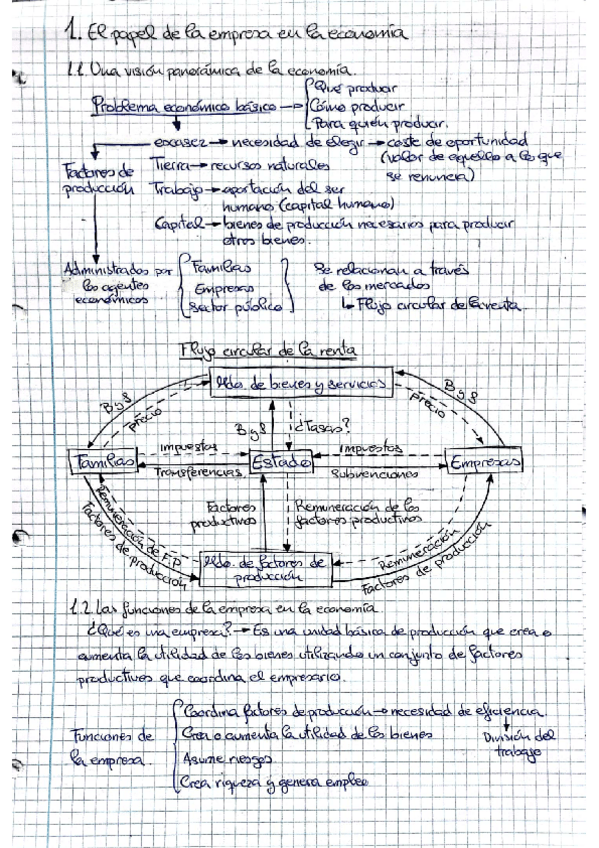 1. El papel de la empresa en la economía
1.1. Una visión panorámica de la economía.
Problema económico básico → Qué producir
Cómo producir
Para quién producir.
escasez → necesidad de elegir → coste de oportunidad
(valor de aquello a lo que
se renuncia)
Factores de
producción
Tierra → recursos naturales
Trabajo → aportación del ser
humano (capital humano)
Capital → bienes de producción necesarios para producir
otros bienes.
Administrados por
los agentes
económicos
Familias
Empresas
Sector público
Se relacionan a través
de los mercados
↳ Flujo circular de la renta.
Flujo circular de la renta
Mdo. de bienes y servicios
B y S
precio
B y S
¿Tasas?
B y S
precio
Familias
impuestos
Transferencias
Estado
impuestos
Subvenciones
Empresas
Factores
productivos
Remuneración de los
factores productivos
Remuneración de F.P
Factores de producción
Mdo. de factores de
producción
Remuneración
Factores de producción
1.2. Las funciones de la empresa en la economía.
¿Qué es una empresa? → Es una unidad básica de producción que crea o
aumenta la utilidad de los bienes utilizando un conjunto de factores
productivos que coordina el empresario.
Funciones de
la empresa
Coordina factores de producción → necesidad de eficiencia
Crea o aumenta la utilidad de los bienes
Asume riesgos
Crea riqueza y genera empleo
División del
trabajo